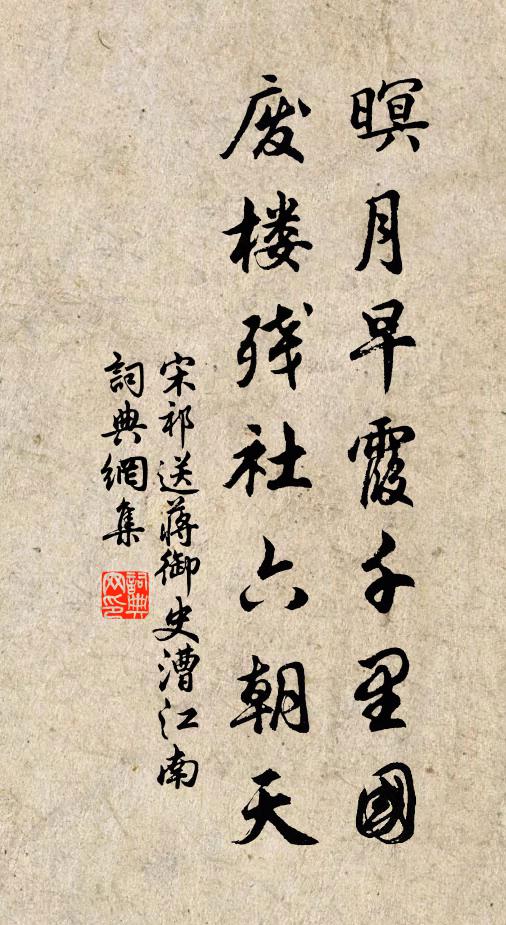 暝月早霞千里國
废楼残社六朝天
宋祁送蒋御史漕江南
詞典網集
詞典网印